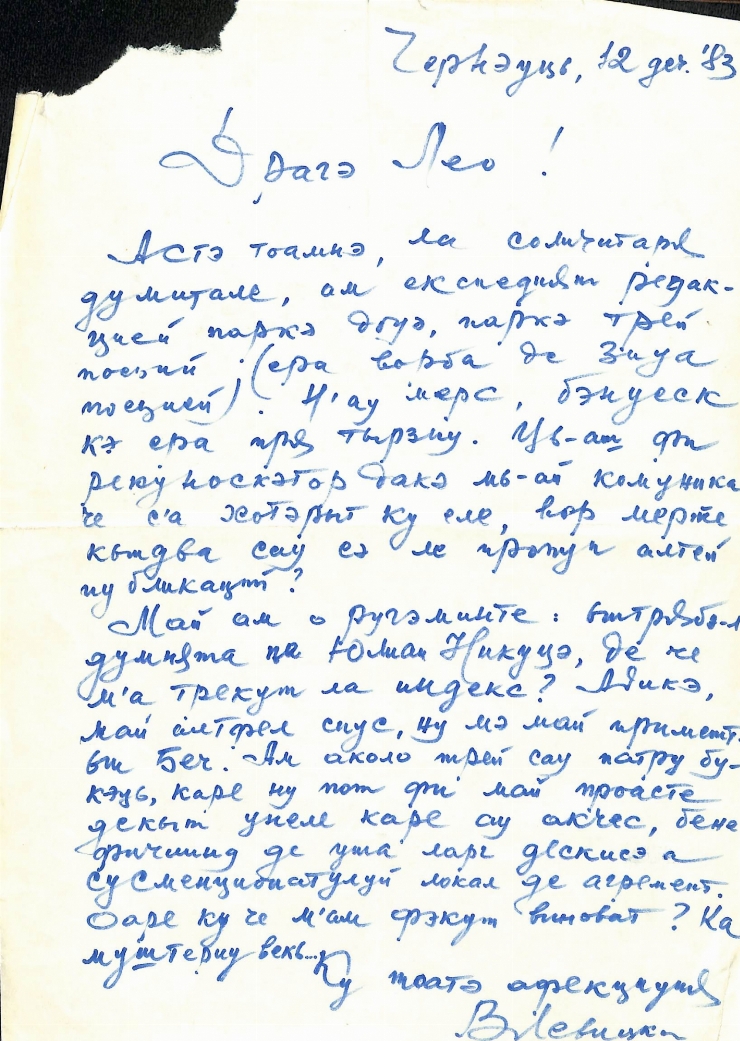 Чернэуць, 12 деч. '83
Драгэ Лео!
Астэ тоамнэ, ла соличитаря
думитале, ам експедият редак-
цией паркэ доуэ, паркэ трей
поезий (ера ворба де Зиуа
поезией). Н'ау мерс, бэнуеск
кэ ера пря тырзиу. Ць-аш фи
рекуноскэтор дакэ мь-ай комуника
че с'а хотэрыт ку еле, вор мерӂе
кындва сау сэ ле пропун алтей
публикаций?
Май ам о ругэминте: ынтрябэ-л
думнята пе Юлиан Никуцэ, де че
м'а трекут ла индекс? Адикэ,
май алтфел спус, ну мэ май примешт
ын Беч. Ам аколо трей сау патру бу-
кэць, каре ну пот фи май проасте
декыт унеле каре ау акчес, бене-
фичиинд де уша ларг дескисэ а
сусменционатулуй локал де агремент.
Оаре ку че м'ам фэкут виноват? Ка
муштериу векь...
Ку тоатэ афекциуня
В. Левицки